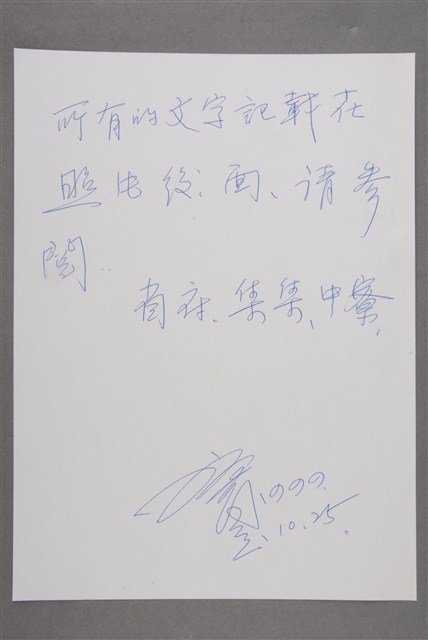 所有的文字記載在
照片後面、請參
閱..
南庄、集集、中寮、
1999.
10.25.